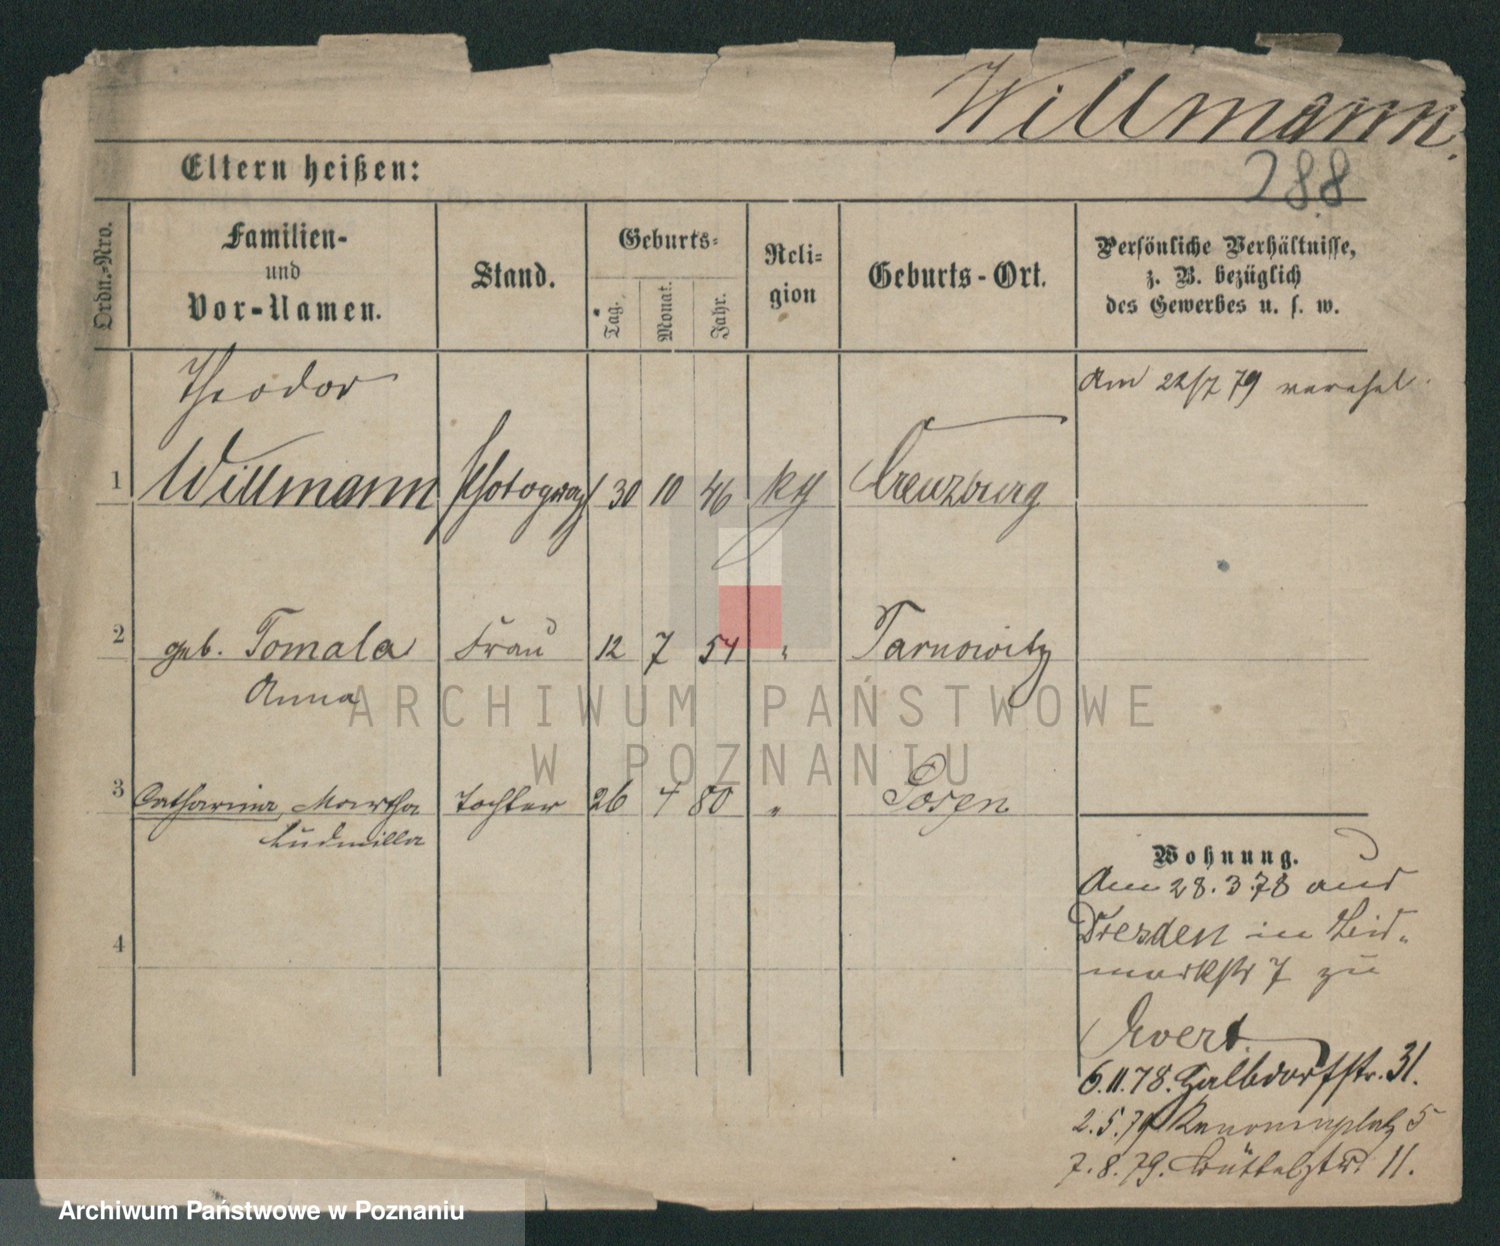 Willmann.
288
Eltern heißen:
Ordn.-Nro.
Familien-
und
Vor-Namen.
Stand.
Geburts-
Tag.
Monat.
Jahr.
Reli-
gion
Geburts-Ort.
Persönliche Verhältnisse,
z. B. bezüglich
des Gewerbes u. s. w.
Theodor
Am 22/7 79 verehel.
1 Willmann Photograph 30 10 46 kg Creuzburg
2 geb. Tomala Frau 12 7 54 " Tarnowitz
Anna
ARCHIWUM PAŃSTWOWE
W POZNANIU
3 Catharina, Martha Tochter 26 4 80 " Posen
Ludmilla
Wohnung.
Am 28.3.78 aus
Dresden in
markstr 7 zu
Evert.
4
6.11.78. Halbdorfstr. 31.
2.5.79 Kanonenplatz 5
7.8.79. Büttelstr. 11.
Archiwum Państwowe w Poznaniu